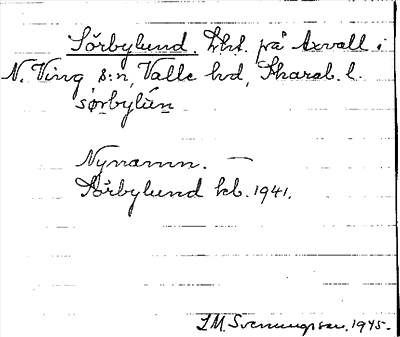 Sörbylund. Lht. på Axvall i
N. Ving s:n, Valle hd, Skarab. l.
sørbylún
Nynamn. —
Sörbylund kb. 1941.
I.M. Svenungsson. 1945.